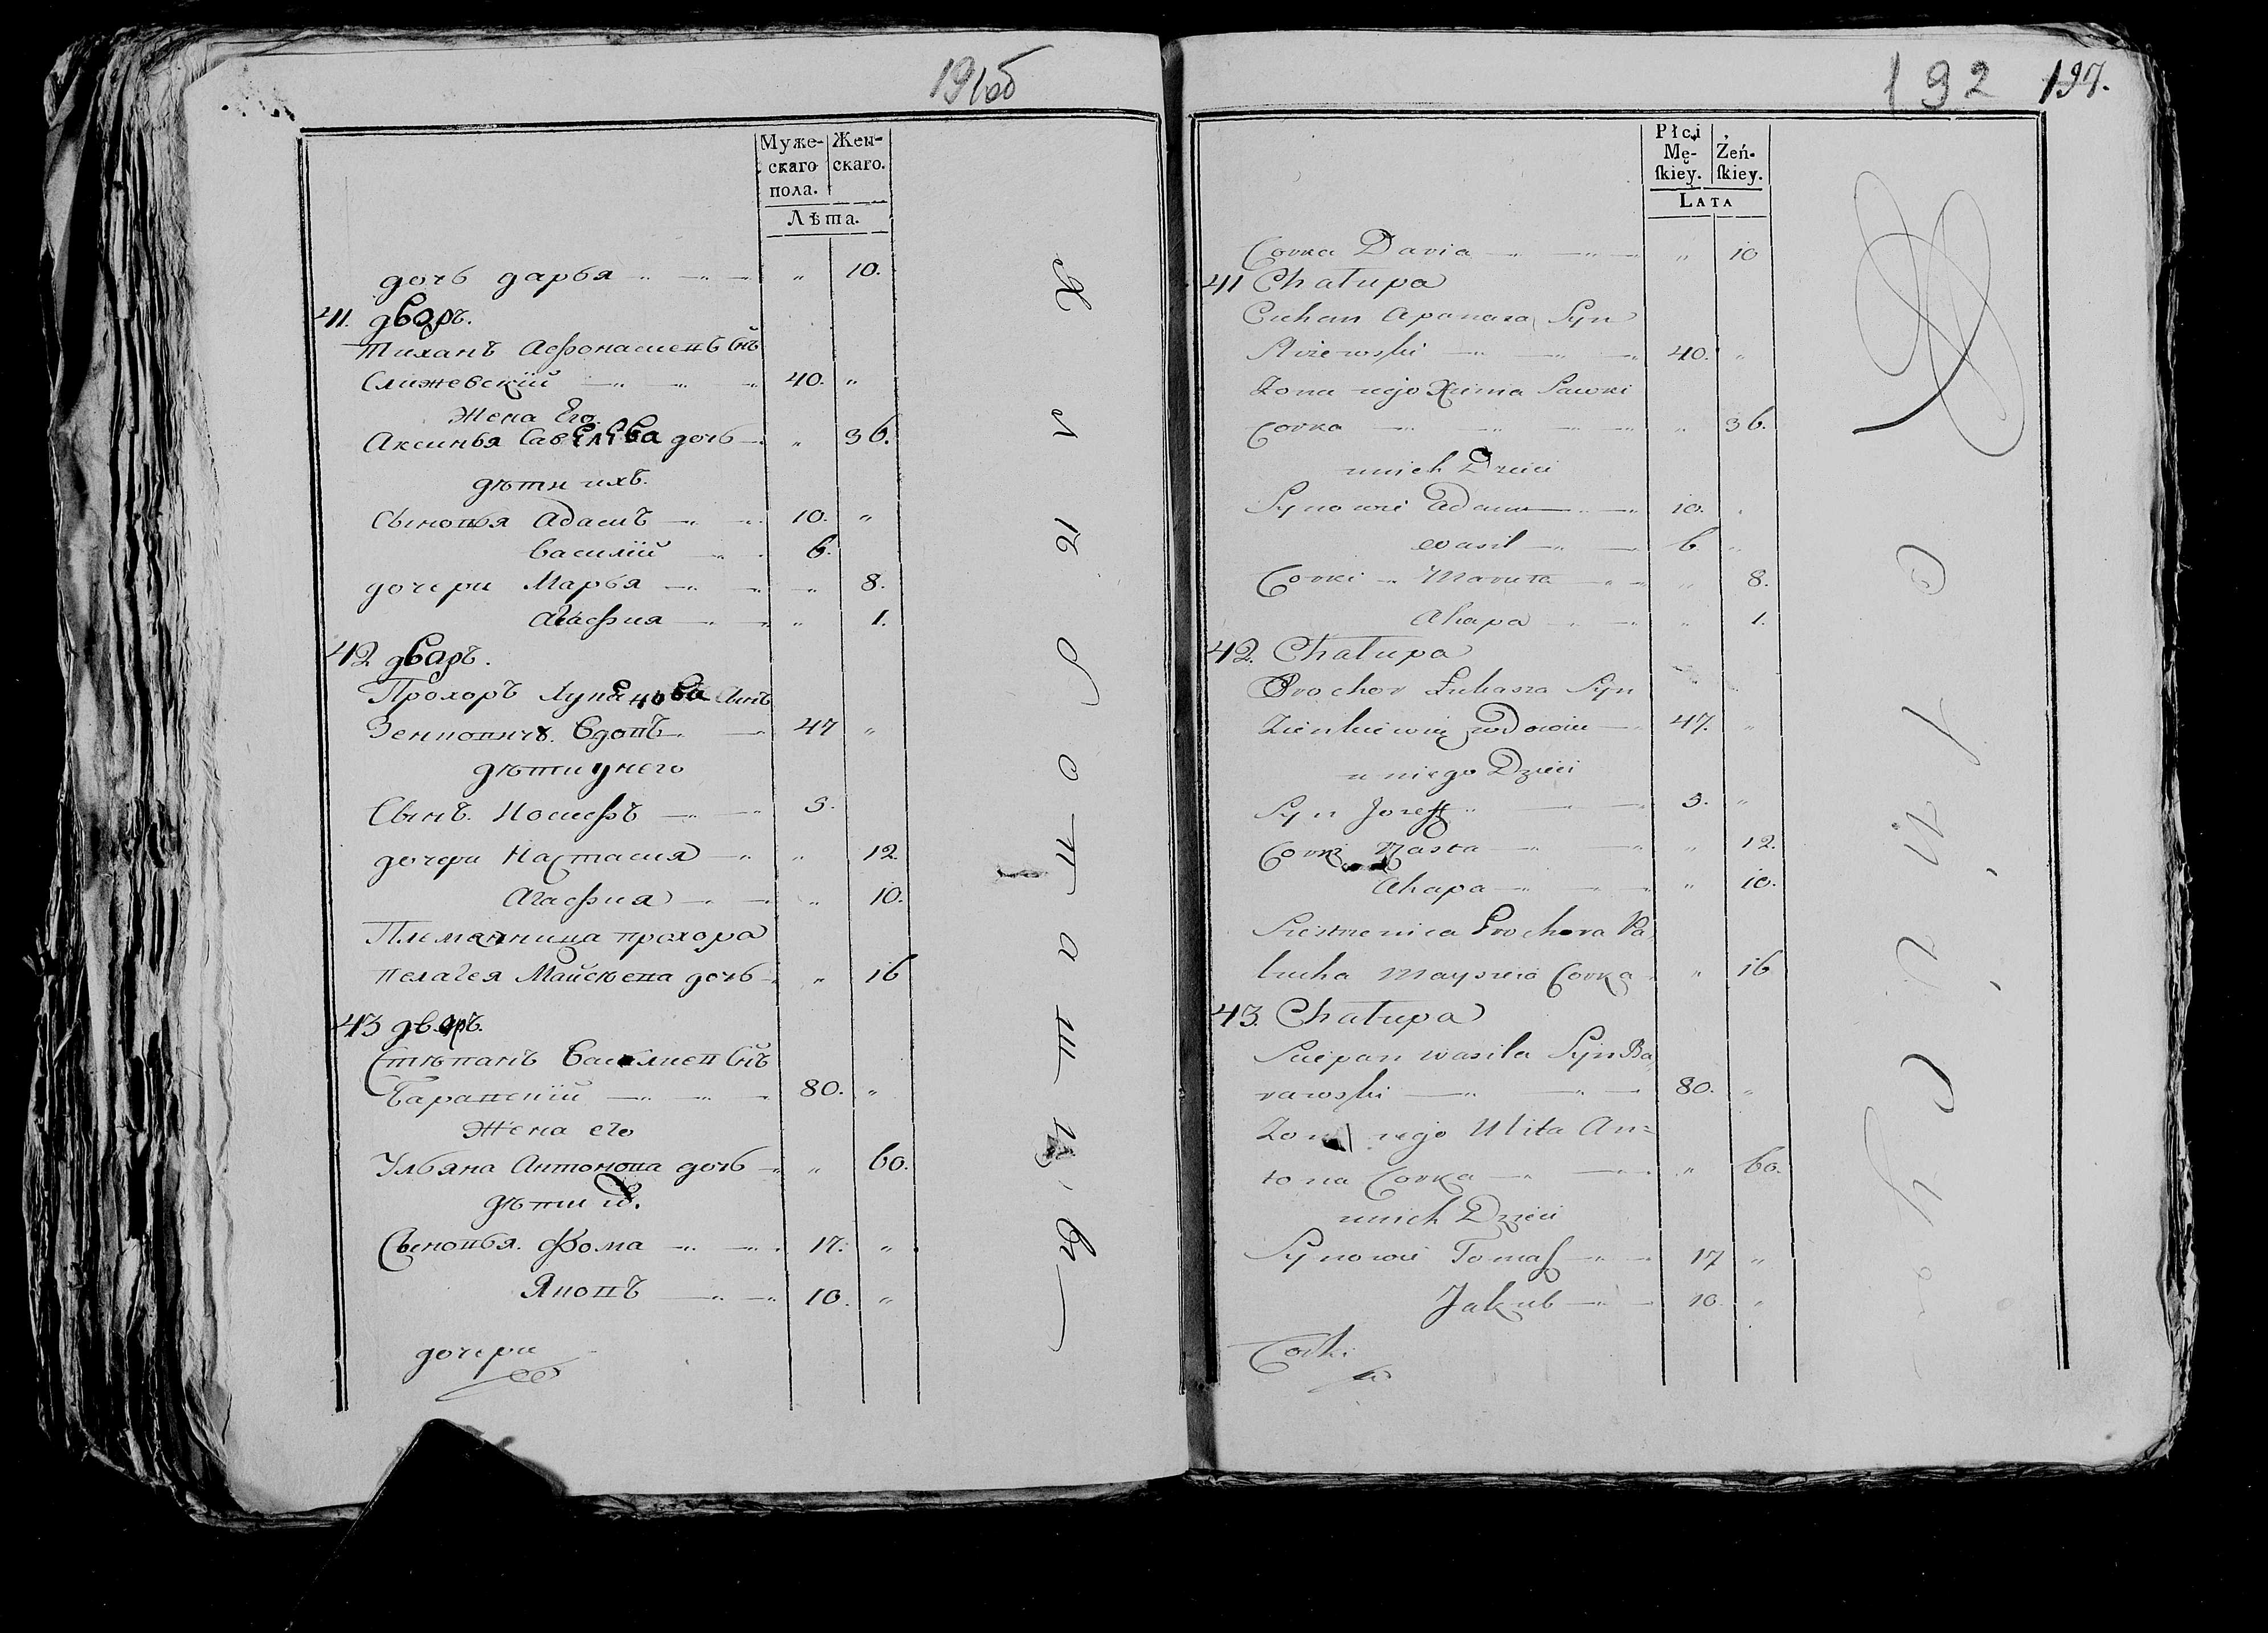 191об
Муже-
скаго
пола.
Жен-
скаго.
Лѣта.
дочь дарья " 10.
41. дворъ.
Тиханъ Афонасиевъ Снъ
Слижевскій 40. "
Жена Его
Аксинья Савельева дочь " 36.
дѣти ихъ.
Сыновья Адамъ 10. "
Василій 6.
дочери Марья " 8.
Агафия " 1.
42 дворъ.
Прохоръ Сынъ
Вдовъ 47 "
дѣти унего
Сынъ. Иосифъ 3.
дочери Настасия " 12.
Агафия " 10.
Племянница прохора
пелагея дочь " 16
43 дворъ.
Стѣпанъ Василиевъ Снъ
80. "
Жена его
Ульяна Антонова дочь " 60.
дѣти
Сыновья. Фома 17. "
Яковъ 10. "
дочери
192 197.
Płci
Mę-
skiey.
Żeń-
skiey.
LATA
Corka Daria " 10
41 Chałupa
Cichan Apanasa Syn
40. "
Zona iego Xima Sawki
Corka " 36.
unich Dzieci
Synowie Adam 10. "
Wasil 6 "
Corki Maruta " 8.
Ahapa " 1.
42. Chałupa
Prochor Łukasza Syn
Zienkiewicz wdowiec 47. "
u niego Dzieci
Syn Jozeff 3. "
Corki Nasta " 12.
Ahapa " 10.
Prochora Pa
łucha Corka " 16
43. Chałupa
Sciepan Wasila Syn Ba
rawski 80. "
Zona iego Ulita An=
tona Corka " 60.
unich Dzieci
Synowie Tomasz 17 "
Jakub 10. "
Corki